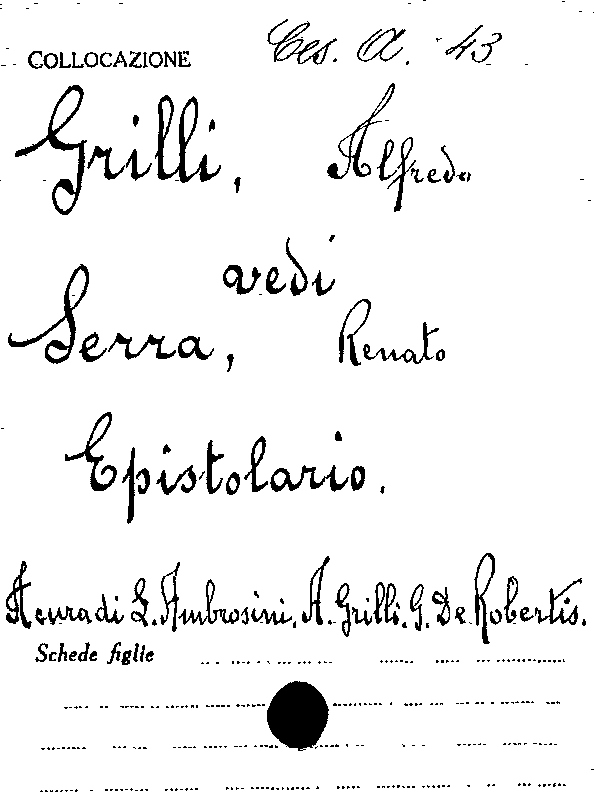 COLLOCAZIONE Ces. A. 43
Grilli, Alfredo
vedi
Serra, Renato
Epistolario.
A cura di L. Ambrosini, A. Grilli, G. De Robertis.
Schede figlie